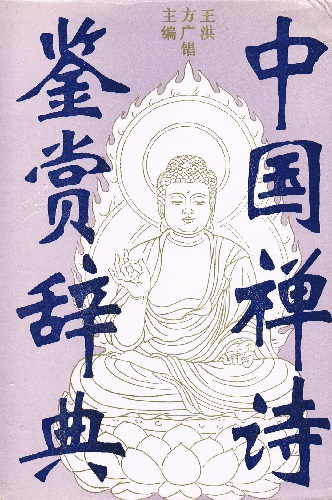 中国禅诗
鉴赏辞典
王洪
方广锠
主编